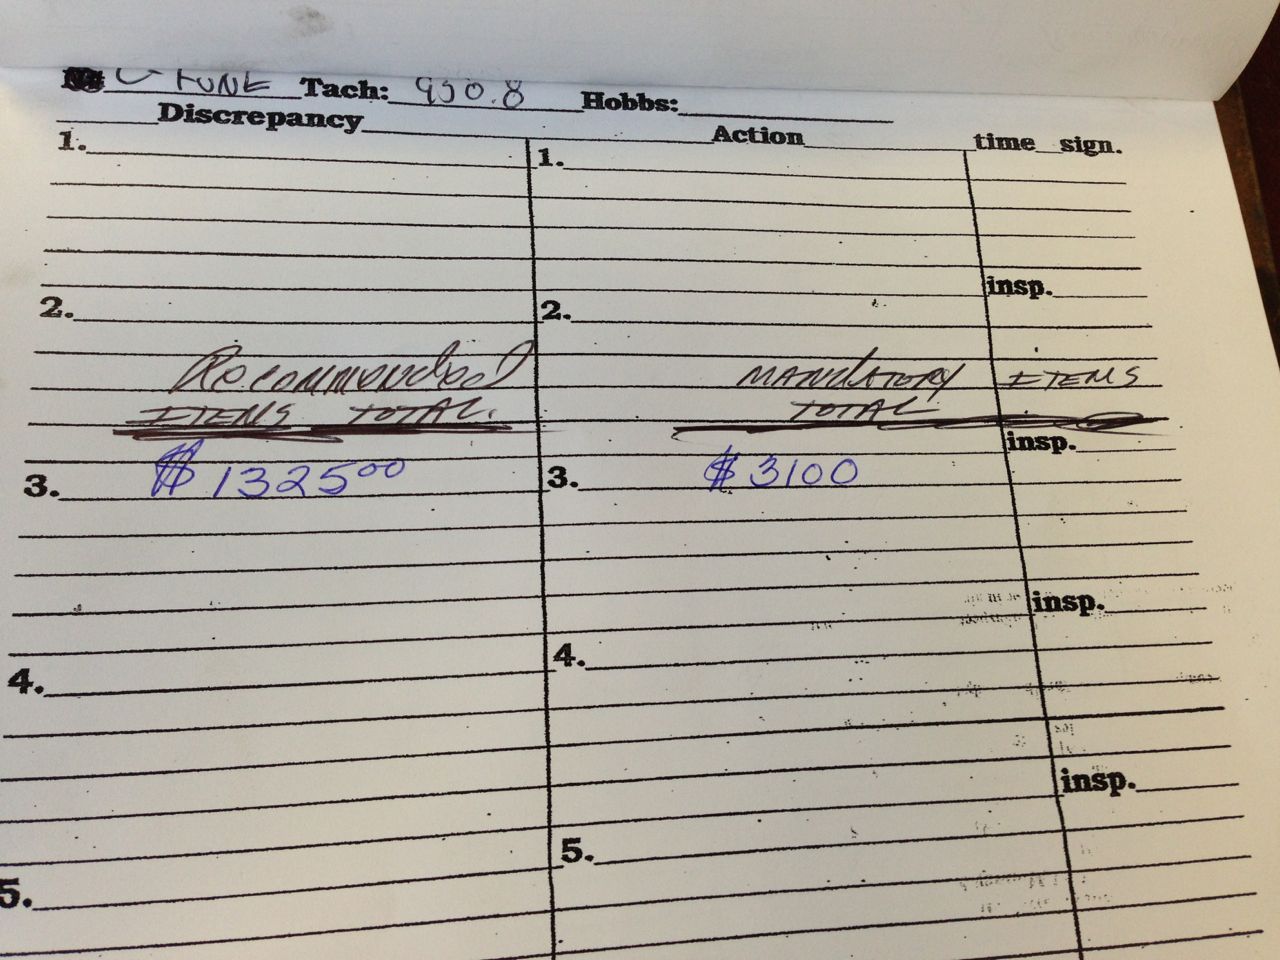 Tach: 930.8 Hobbs:
Discrepancy Action time sign.
1. 1.
insp.
2. 2.
Recommended MANDATORY ITEMS
ITEMS TOTAL. TOTAL
insp.
3. $ 1325 00 3. $ 3100
insp.
4. 4.
insp.
5. 5.